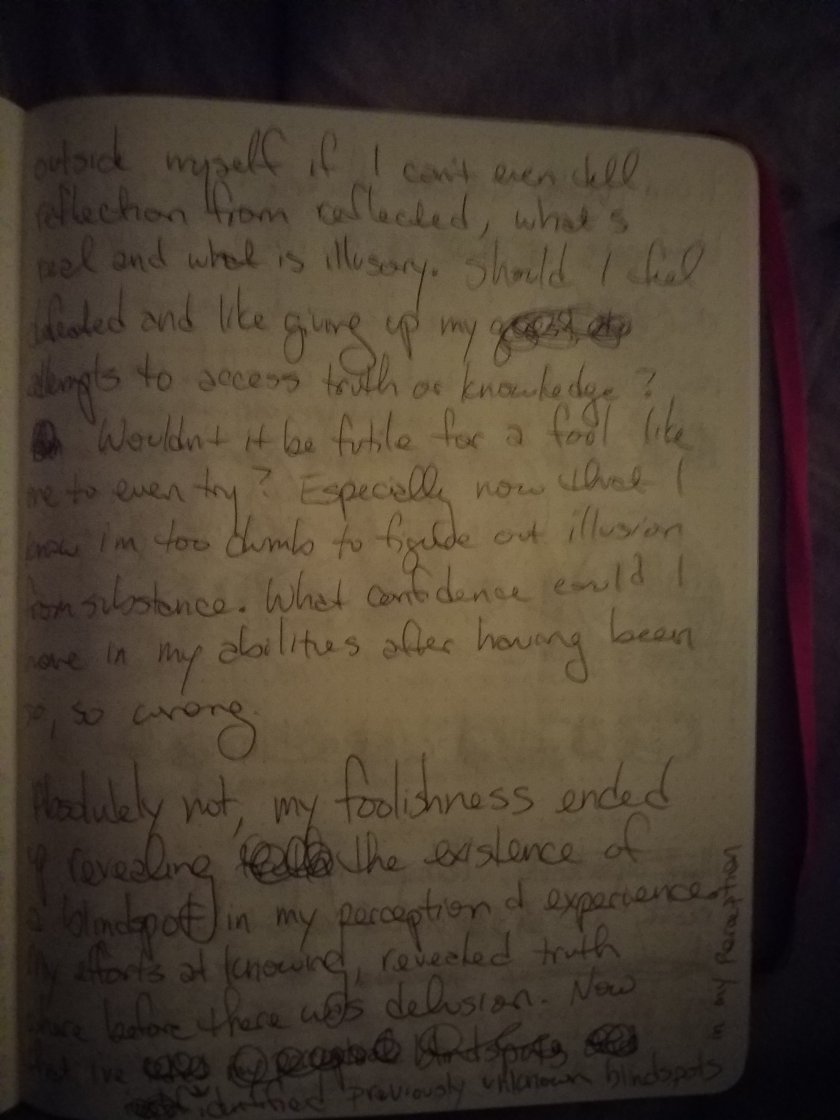 outside myself if I can't even tell
reflection from reflected, what's
real and what is illusory. Should I feel
defeated and like giving up my
attempts to access truth or knowledge?
Wouldn't it be futile for a fool like
me to even try? Especially now that I
know im too dumb to figude out illusion
from substance. What confidence could I
have in my abilities after having been
so, so wrong.
Absolutely not, my foolishness ended
up revealing the existence of
a blindspot in my perception of experience.
My efforts at knowing, revealed truth
where before there was delusion. Now
that I've blindspots
identified previously unknown blindspots
in my perception